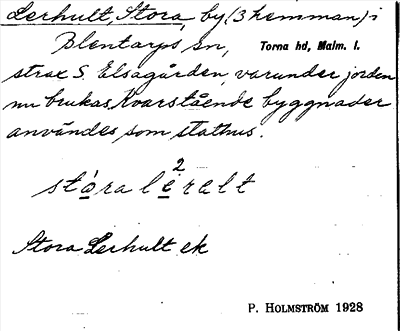 Lerhult, Stora, by (3 hemman) i
Blentarps sn, Torna hd, Malm. l.
strax S. Elsagården, varunder jorden
nu brukas. Kvarstående byggnader
användes som stathus.
2
stóra lerelt
Stora Lerhult ek
P. HOLMSTRÖM 1928